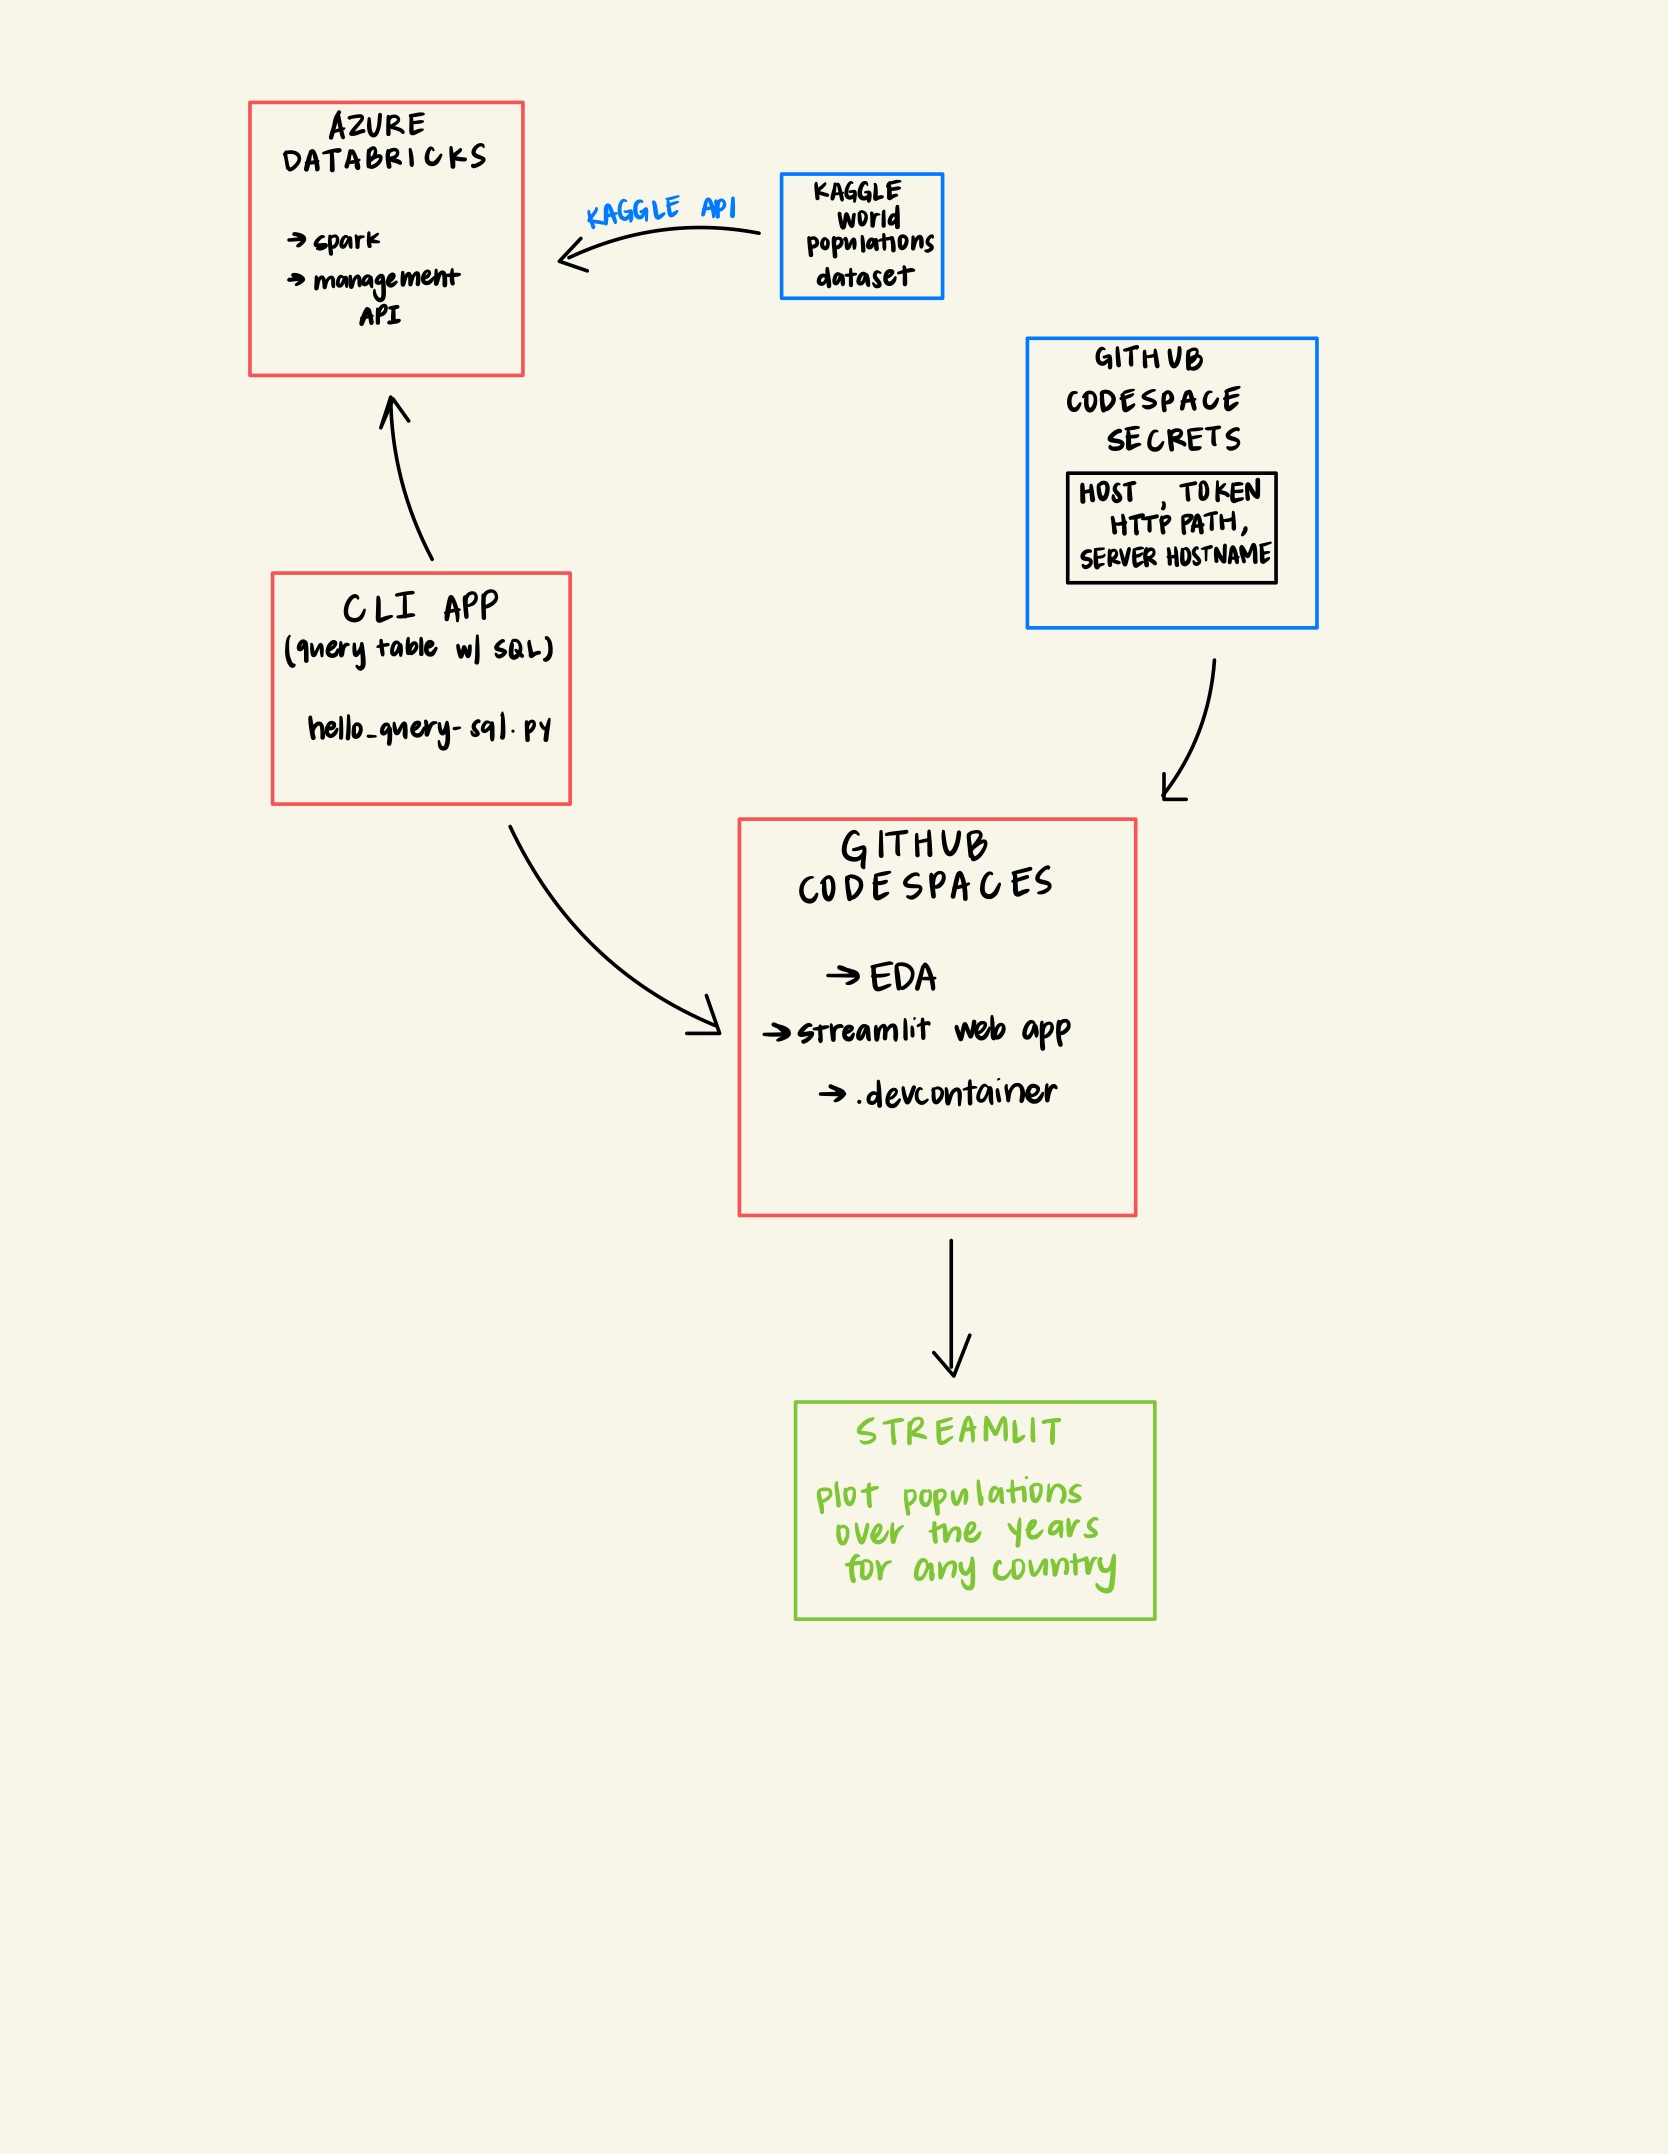 AZURE
DATABRICKS
→ spark
→ management
API
KAGGLE API
KAGGLE
world
populations
dataset
GITHUB
CODESPACE
SECRETS
HOST , TOKEN
HTTP PATH,
SERVER HOSTNAME
CLI APP
(query table w/ SQL)
hello_query-sql.py
GITHUB
CODESPACES
→ EDA
→ streamlit web app
→ .devcontainer
STREAMLIT
plot populations
over the years
for any country